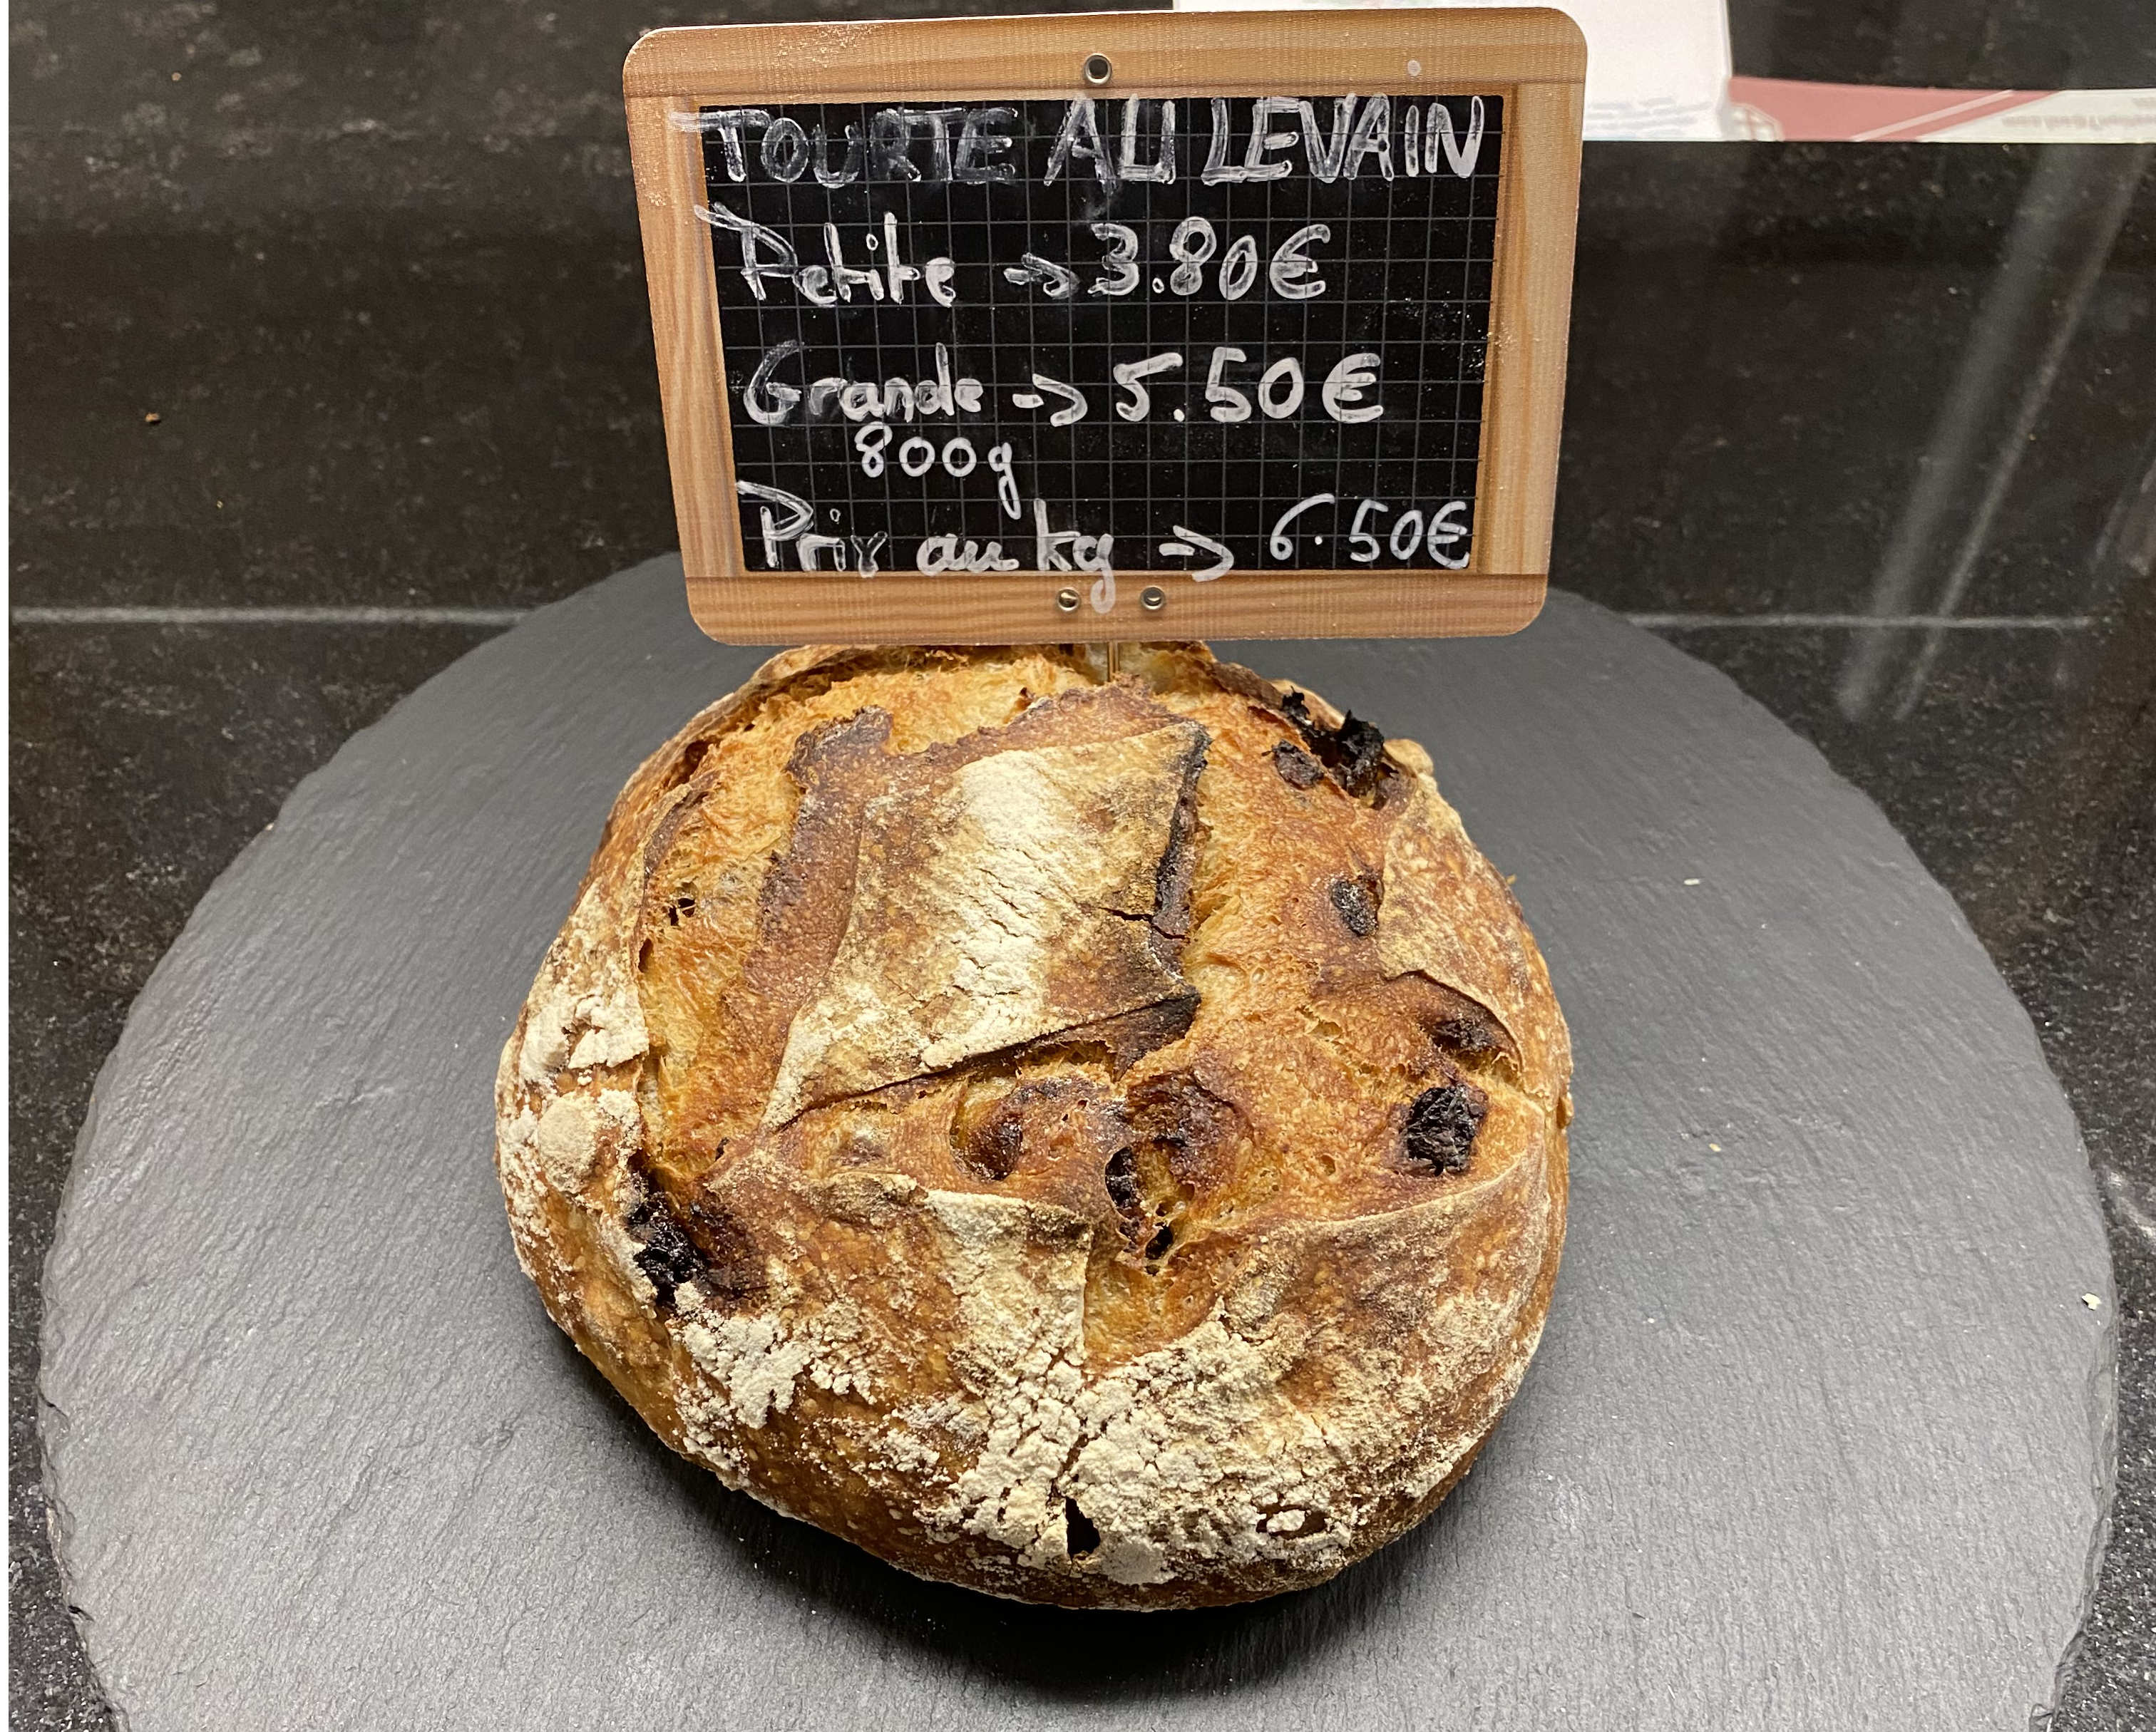 TOURTE AU LEVAIN
Petite -> 3.80€
Grande -> 5.50€
800g
Prix au kg -> 6.50€